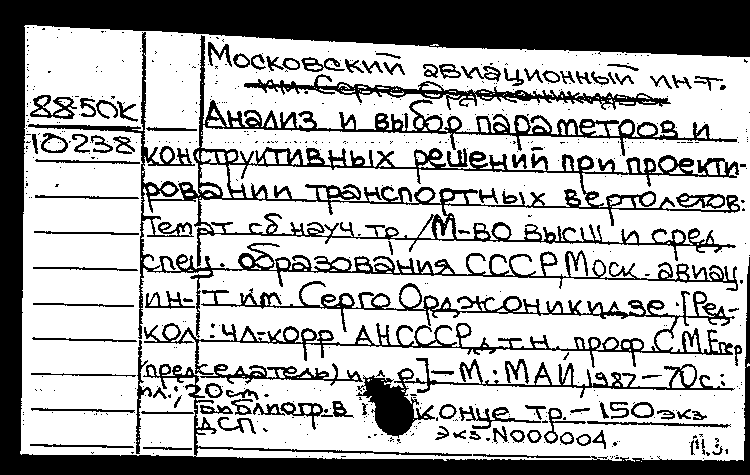 Московский авиационный ин-т.
им. Серго Орджоникидзе
88-50к
10238
Анализ и выбор параметров и
конструктивных решений при проекти-
ровании транспортных вертолетов:
Темат сб науч. тр. /М-во высш и сред
спец. образования СССР, Моск. авиац.
ин-т им. Серго Орджоникидзе, [Ред-
кол.: чл-корр. АНСССР, д.т.н., проф. С.М.Егер
(председатель) и др.]—М.: МАИ, 1987—70с.:
ил.; 20см.
Библиогр. в конце тр.—150экз
ДСП. экз.N000004.
М.З.